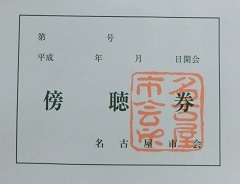 第　号
平成　年　月　日開会
傍聴券
名古屋市会
名古屋
市会